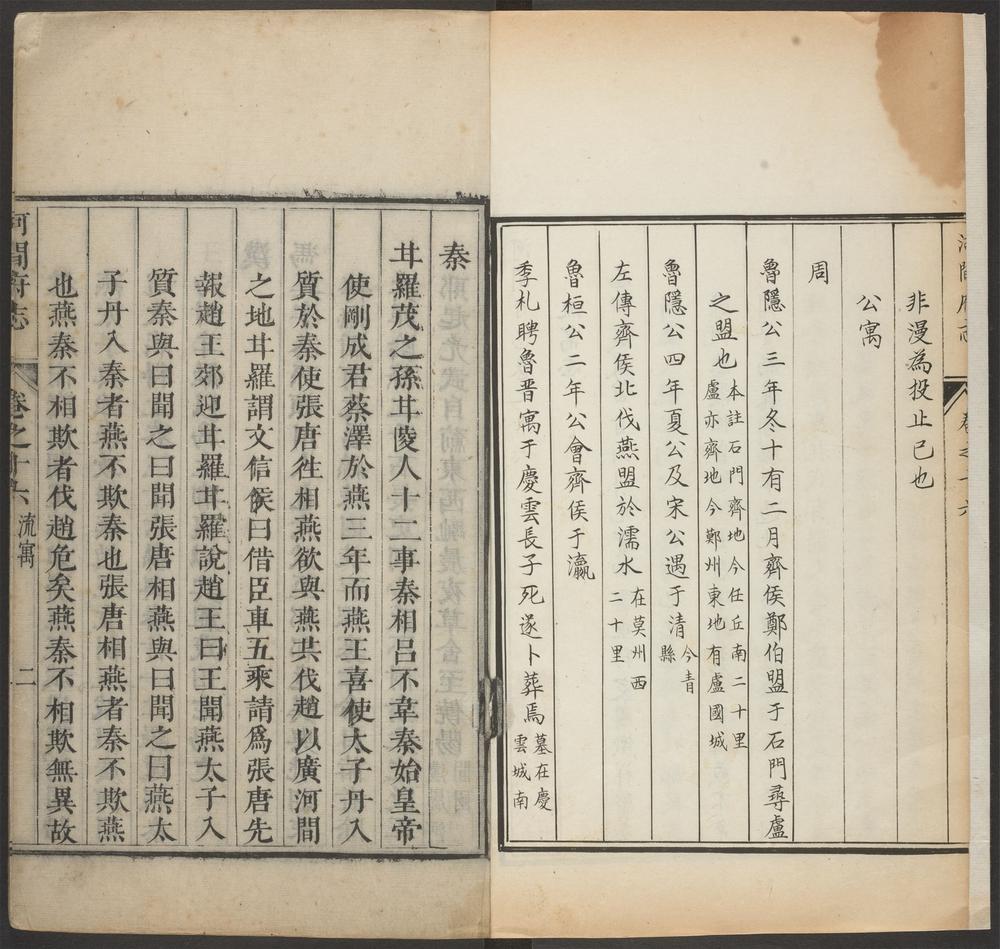 河間府志
卷之十六
非漫為投止已也
公寓
周
魯隱公三年冬十有二月齊侯鄭伯盟于石門尋盧
之盟也本註石門齊地今任丘南二十里
盧亦齊地今鄚州東地有盧國城
魯隱公四年夏公及宋公遇于清今青
縣
左傳齊侯北伐燕盟於濡水在莫州西
二十里
魯桓公二年公會齊侯于瀛
季札聘魯晋寓于慶雲長子死遂卜葬焉墓在慶
雲城南
秦
甘羅茂之孫甘陵人十二事秦相呂不韋秦始皇帝
使剛成君蔡澤於燕三年而燕王喜使太子丹入
質於秦使張唐徃相燕欲與燕共伐趙以廣河間
之地甘羅謂文信侯曰借臣車五乘請爲張唐先
報趙王郊迎甘羅甘羅說趙王曰王聞燕太子入
質秦與曰聞之曰聞張唐相燕與曰聞之曰燕太
子丹入秦者燕不欺秦也張唐相燕者秦不欺燕
也燕秦不相欺者伐趙危矣燕秦不相欺無異故
河間府志
卷之十六
流寓
二